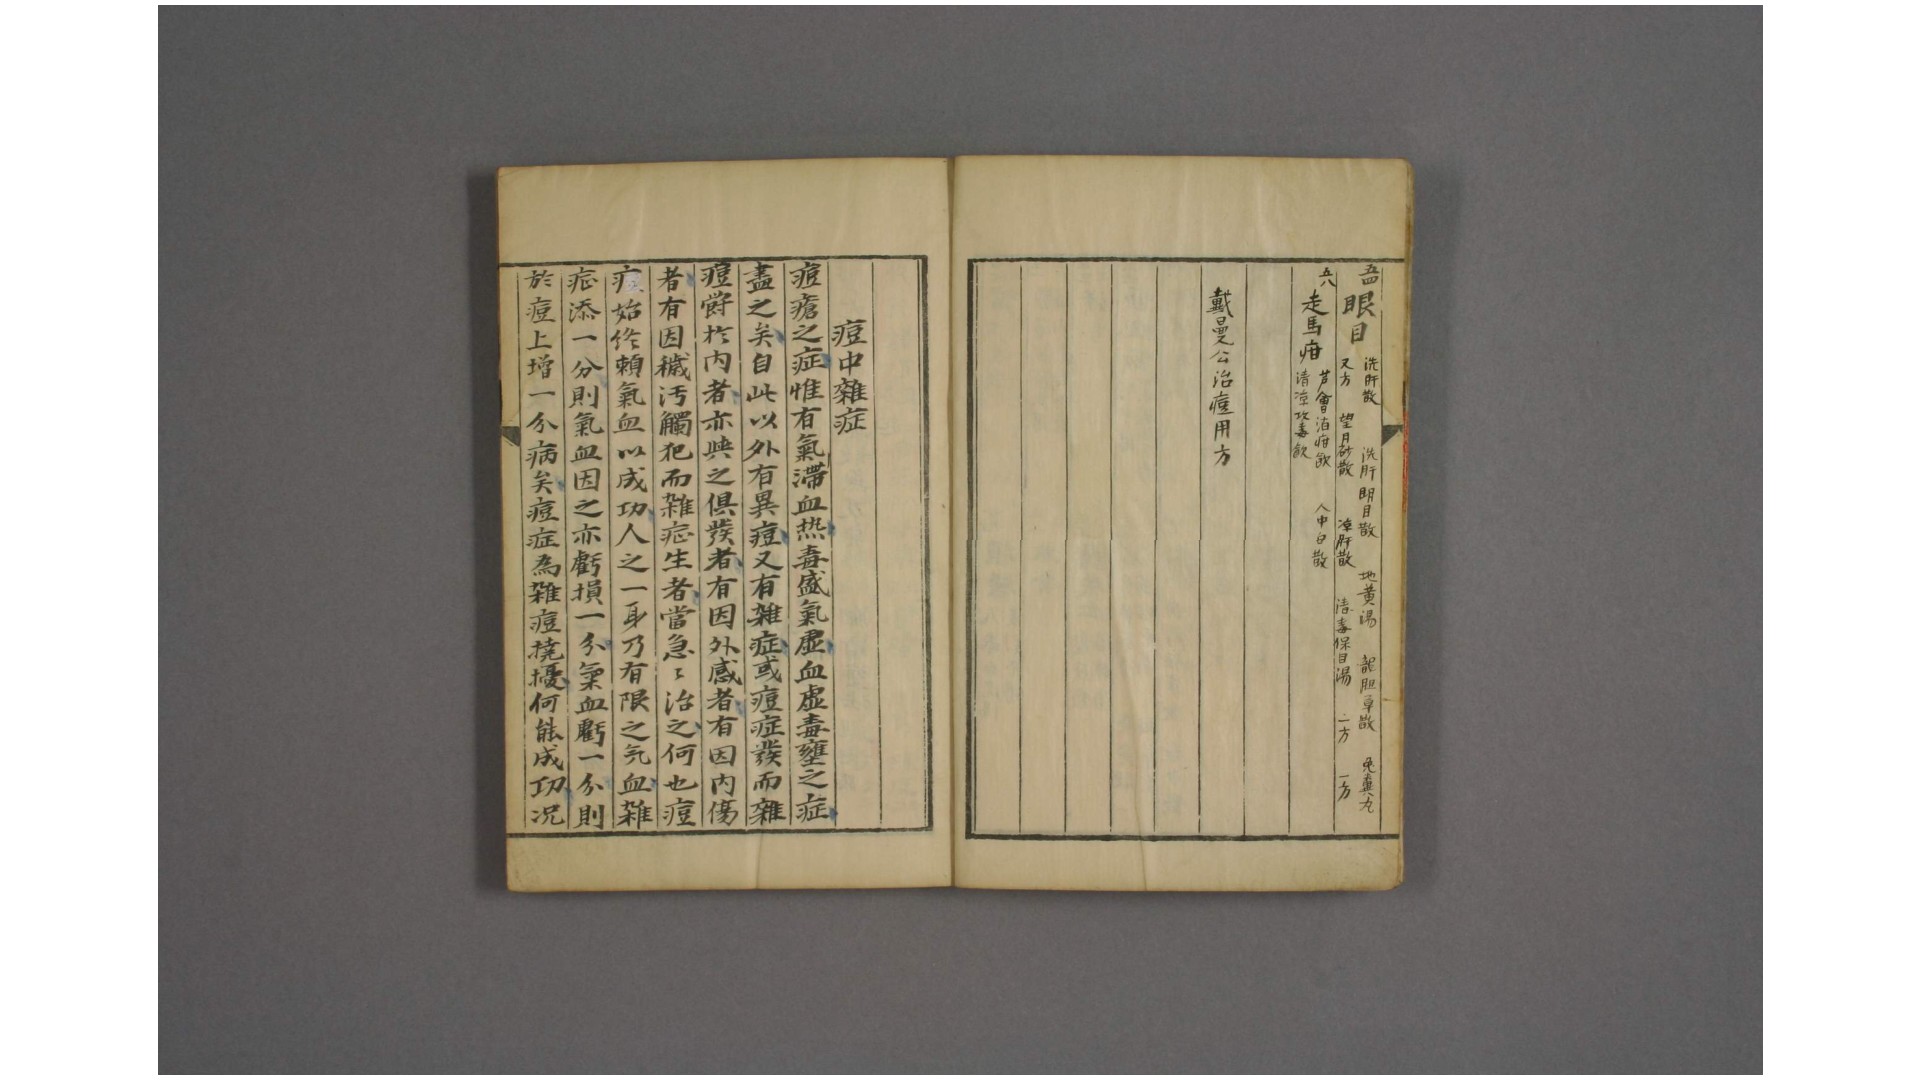 五四
眼目
洗肝散 洗肝明目散 地黄湯 龍胆草散 兎糞丸
又方 望月砂散 凉肝散 清毒保目湯 二方 一方
五八
走馬疳
芦會治疳飲 人中白散
清凉攻毒飲
戴曼公治痘用方
痘中雜症
痘瘡之症惟有氣滯血热毒盛氣虛血虛毒壅之症
盡之矣自此以外有異痘又有雜症或痘症發而雜
痘欝於内者亦與之俱發者有因外感者有因内傷
者有因穢汚觸犯而雜症生者當急〻治之何也痘
痕始終賴氣血以成功人之一身乃有限之気血雜
症添一分則氣血因之亦虧損一分氣血虧一分則
於痘上增一分病矣痘症為雜痘撓擾何能成功况